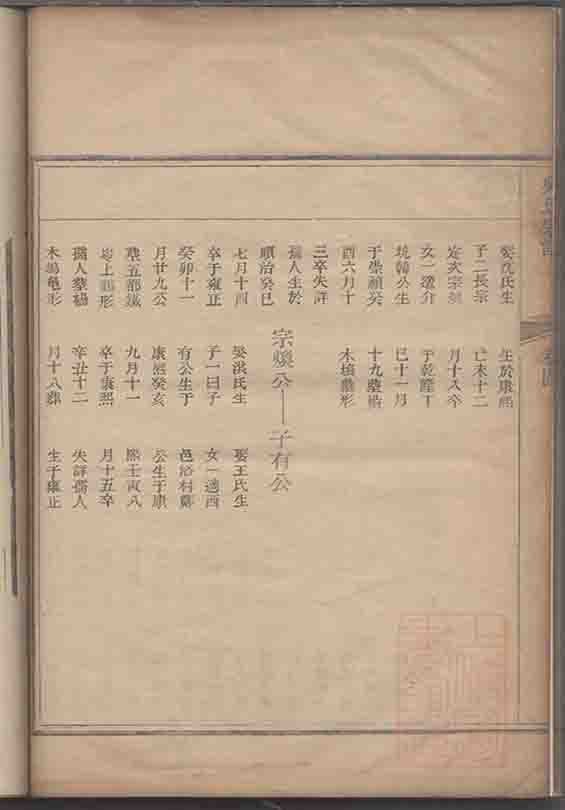 娶沈氏生
子二長宗
次宗
女一適介
坑韓公生
于崇禎癸
酉六月十
三卒失詳
孺人生於
順治癸巳
七月十四
卒于雍正
癸卯十一
月廿九公
葬五都
上鵝形
孺人葬楊
木塢龜形
生於康熙
己未十二
月十八卒
于乾隆丁
巳十一月
十九葬楊
木塢形
宗煥公—子有公
娶洪氏生
子一曰子
有公生于
康熙癸亥
九月十一
卒于康熙
辛丑十二
月十八葬
娶王氏生
女一適西
邑沿村鄭
公生于康
熙壬寅八
月十五卒
失詳孺人
生于雍正